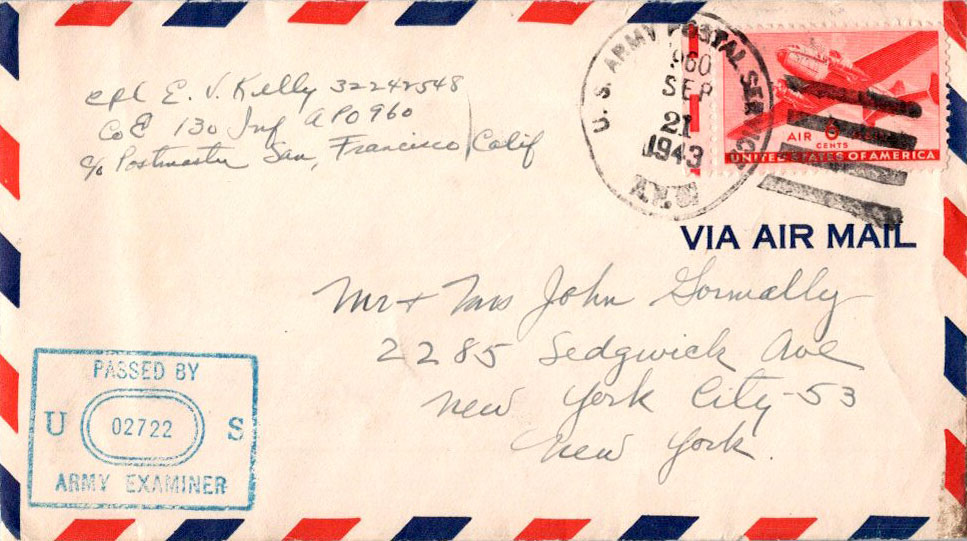 cpl E. V. Kelly 32242548
Co E 130 Inf APO 960
c/o Postmaster San, Francisco Calif
U. S. ARMY POSTAL SERVICE
960
SEP
21
1943
AIR 6
CENTS
UNITED STATES OF AMERICA
VIA AIR MAIL
Mr + Mrs John Gormally
2285 Sedgwick Ave
New York City-53
New York.
PASSED BY
U 02722 S
ARMY EXAMINER